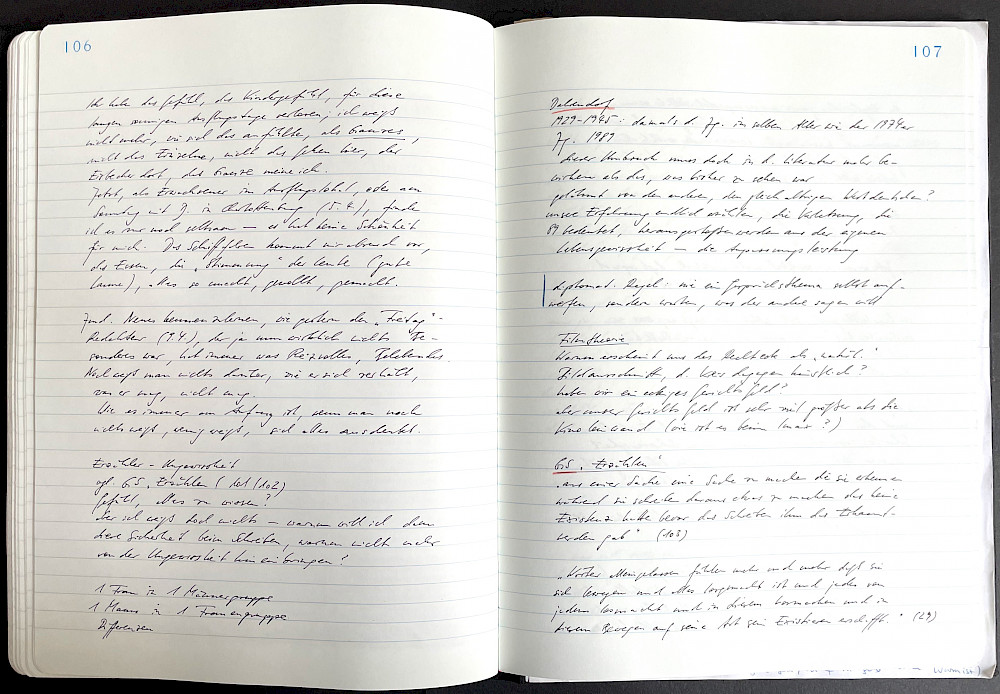 106
Ich habe das Gefühl, das Kindergefühl, für diese
sonnigen Ausflugstage verloren, ich weiß
nicht mehr, wie sich das anfühlte, als Ganzes,
nicht das Einzelne, nicht das Gehen hier, der
Erdbeer dort, das Ganze meine ich.
Jetzt, als Erwachsener im Ausflugslokal, oder am
Sonntag mit J. in Charlottenburg (5.4.), finde
ich es nur noch seltsam – es hat keine Schönheit
für mich. Das Schiffefahren kommt mir absurd vor,
das Essen, die „Stimmung" der Leute (gute
Laune), alles so gemacht, gewollt, gemischt.
Jmd. Neues kennenzulernen, wie gestern den „Freitag"-
Redakteur (9.4.), der ja nun wirklich nichts Be-
sonderes war, hat immer was Reizvolles, Belebendes.
Noch weiß man nichts darüber, wie er sich verhält,
was er mag, nicht mag.
Wie es immer am Anfang ist, wenn man noch
nichts weiß, wenig weiß, sich alles ausdenkt.
Erzähler – Ungewissheit
vgl. GS „Erzählen" (102)
Gefühl, alles zu wissen?
Aber ich weiß doch nichts – warum will ich dann
diese Sicherheit beim Schreiben, warum nicht mehr
von der Ungewissheit hineinbringen?
1 Frau in 1 Männergruppe
1 Mann in 1 Frauengruppe
Differenzen
107
1929–1945: damals d. Jg. im selben Alter wie der 1974er
Jg. 1989
dieser Umbruch muss doch in d. Literatur mehr be-
wirken als das, was bisher zu sehen war
gelähmt von den anderen, den gleichaltrigen Westdeutschen?
unsere Erfahrung endlich erzählen, die Verletzung, die
89 bedeutet, herausgerissen werden aus der eigenen
Lebensgewissheit – die Anpassungsleistung
diplomat. Regel: nie ein Gesprächsthema selbst auf-
werfen, sondern warten, was der andere sagen will
Filmtheorie
Warum erscheint uns das Rechteck als „natürl."
Bildausschnitt, d. Kreis dagegen künstlich?
haben wir ein eckiges Gesichtsfeld?
aber unser Gesichtsfeld ist sehr viel größer als die
Kinoleinwand (wie ist es beim Imax?)
GS „Erzählen"
„aus einer Sache eine Sache zu machen die sie erkennen
während sie schreiben daraus etwas zu machen das keine
Existenz hatte bevor das Schreiben ihm das Erkannt-
werden gab" (103)
sich bewegen und alles losgemacht ist und jedes von
jedem losgemacht und in diesem Losmachen und in
diesem Bewegen auf seine Art sein Existieren erschafft." (29)